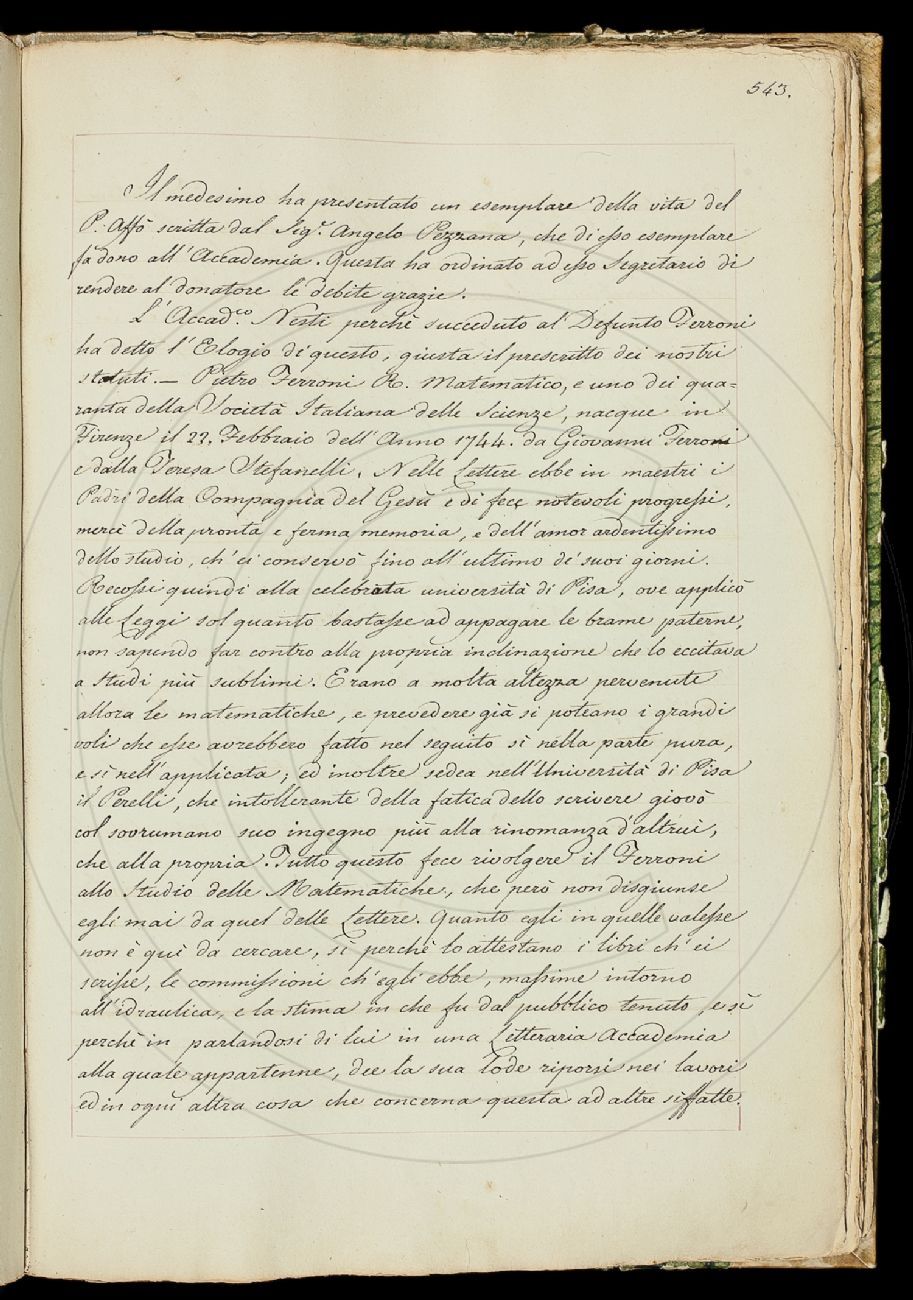 543.
Il medesimo ha presentato un esemplare della vita del
P. Affò scritta dal Sig.r Angelo Pezzana, che di esso esemplare
fà dono all'Accademia. Questa ha ordinato ad esso Segretario di
rendere al donatore le debite grazie.
L'Accad.co Nesti perchè succeduto al Defunto Ferroni
ha detto l'Elogio di questo, giusta il prescritto dei nostri
statuti. — Pietro Ferroni R. Matematico, e uno dei qua=
ranta della Società Italiana delle Scienze, nacque in
Firenze il 22. Febbraio dell'Anno 1744. da Giovanni Ferroni
e dalla Teresa Stefanelli. Nelle Lettere ebbe in maestri i
Padri della Compagnia del Gesù e di fece notevoli progressi,
mercè della pronta e ferma memoria, e dell'amor ardentissimo
dello studio, ch'ei conservò fino all'ultimo de' suoi giorni.
Recossi quindi alla celebrata università di Pisa, ove applicò
alle Leggi sol quanto bastasse ad appagare le brame paterne,
non sapendo far contro alla propria inclinazione che lo eccitava
a Studi più sublimi. Erano a molta altezza pervenute
allora le matematiche, e prevedere già si poteano i grandi
voli che esse avrebbero fatto nel seguito sì nella parte pura,
e sì nell'applicata; ed inoltre sedea nell'Università di Pisa
il Perelli, che intollerante della fatica dello scrivere giovò
col sovrumano suo ingegno più alla rinomanza d'altrui,
che alla propria. Tutto questo fece rivolgere il Ferroni
allo Studio delle Matematiche, che però non disgiunse
egli mai da quel delle Lettere. Quanto egli in quelle valesse
non è quì da cercare, sì perchè lo attestano i libri ch'ei
scrisse, le commissioni ch'egli ebbe, massime intorno
all'idraulica, e la stima in che fu dal pubblico tenuto, e sì
perchè in parlandosi di lui in una Letteraria Accademia
alla quale appartenne, dee la sua lode riporsi nei lavori
ed in ogni altra cosa che concerna questa ad altre siffatte.